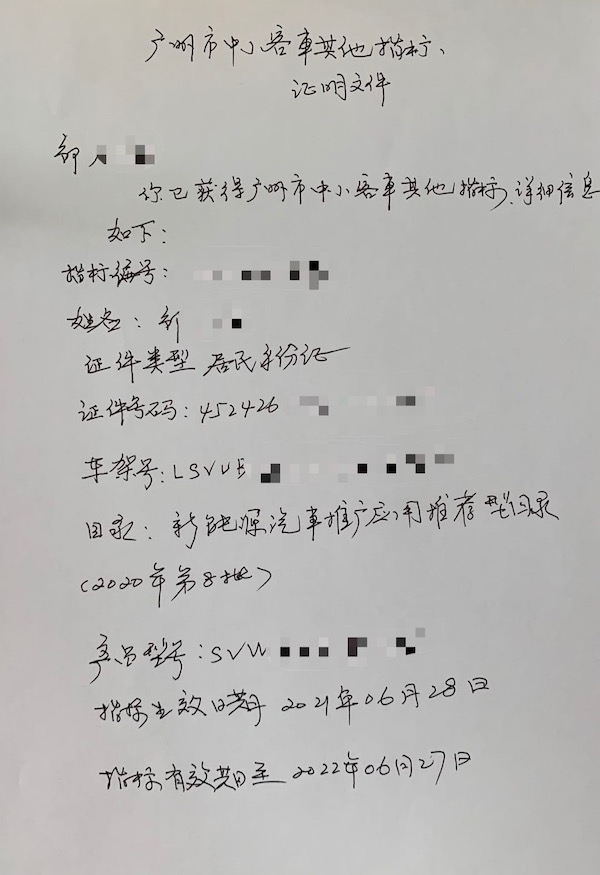 广州市中小客車其他指标
证明文件
你已获得广州市中小客車其他指标,详细信息
如下:
指标编号:
姓名:
证件类型 居民身份证
证件号码:452426
车架号:LSVUB
目录:新能源汽車推广应用推荐型目录
(2020年第8批)
产品型号:SVW
指标生效日期 2021年06月28日
指标有效期至 2022年06月27日